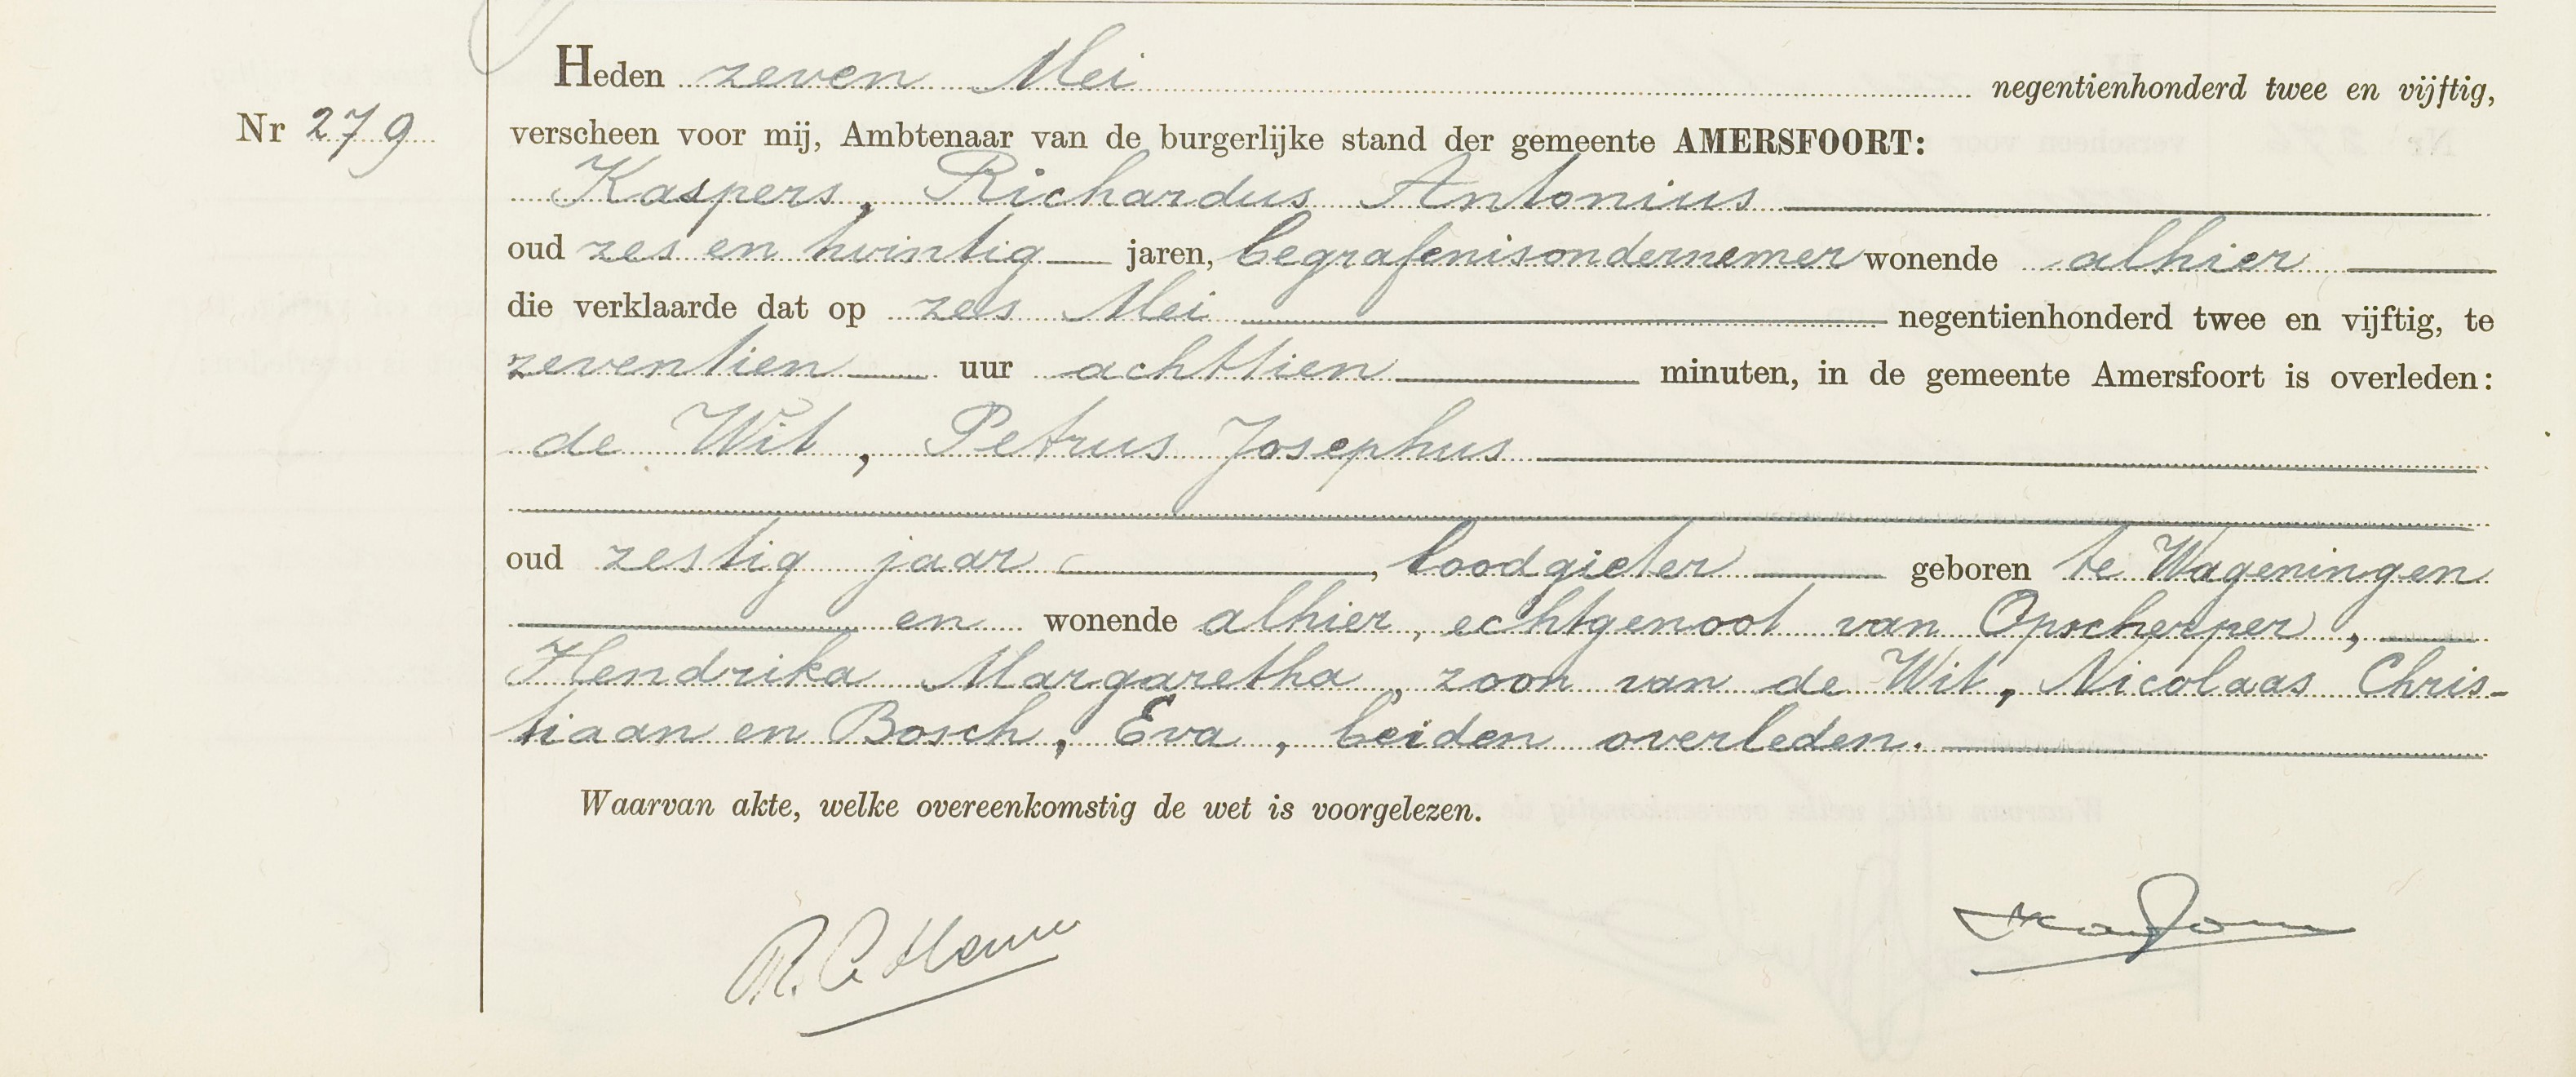 Heden zeven Mei negentienhonderd twee en vijftig,
Nr 279
verscheen voor mij, Ambtenaar van de burgerlijke stand der gemeente AMERSFOORT:
Kaspers, Richardus Antonius
oud zes en twintig jaren, begrafenisondernemer wonende alhier
die verklaarde dat op zes Mei negentienhonderd twee en vijftig, te
zeventien uur achttien minuten, in de gemeente Amersfoort is overleden:
de Wit, Petrus Josephus
oud zestig jaar, loodgieter geboren te Wageningen
en wonende alhier, echtgenoot van Opscherper,
Hendrika Margaretha, zoon van de Wit, Nicolaas Chris-
tiaan en Bosch, Eva, beiden overleden.
Waarvan akte, welke overeenkomstig de wet is voorgelezen.